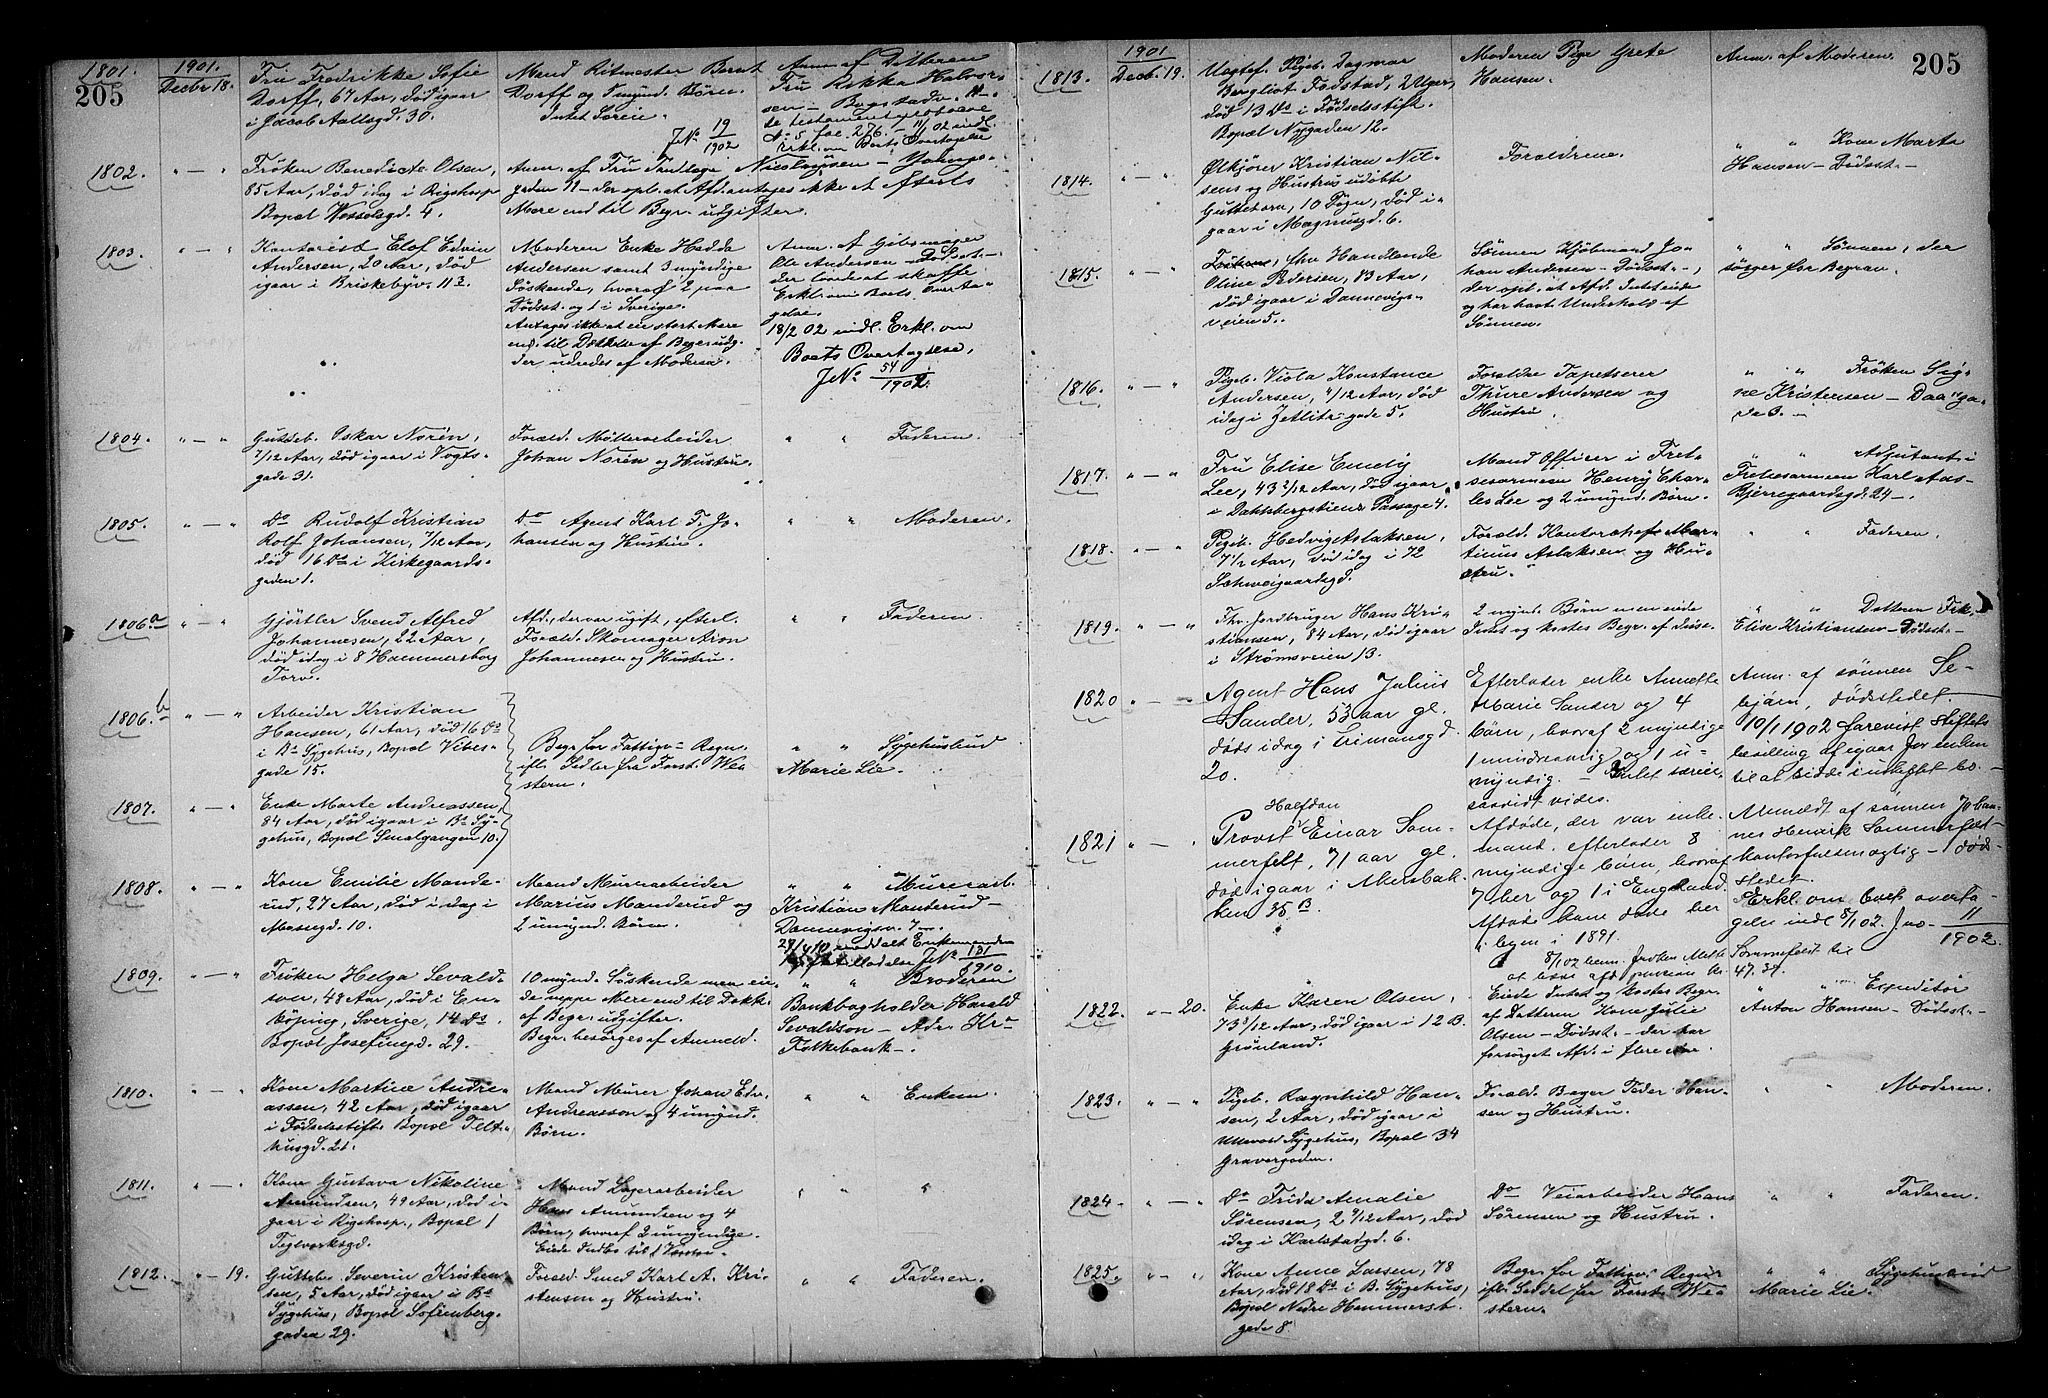 205
1901.
1801.
Decbr 18.
Fru Fredrikke Sofie
Dorff, 67 Aar, död igaar
i Jacob Aallsgd. 30.
Mand Ritmester Bernt
Dorff og 8 mynd. Börn.
Intet Særeie.
JNo 19/1902
Anm. af Datteren
Fru Rikka Halvor-
sen - Bogstadv.
11/1 02 indl.
Erkl. om Boets Overtagelse
1802.
" — "
Fröken Benedicte Olsen,
85 Aar, död idag i Rigshosp.
Bopæl Wesselsgd. 4.
Anm. af Fru Nicolaysen
gaden 11 - der opl. at Afd. antages ikke at efterls
Mere end til Begr. udgifter.
1803.
" — "
Kontorist Elof Edvin
Andersen, 20 Aar, död
igaar i Briskebyv. 11
Moderen Enke Hedda
Andersen samt 3 myndige
Söskende, hvoraf 2 paa
Dödsst. og 1 i Sverige.
Antages ikke at eie stort Mere
end til Dækkelse af Begr. udg.
der udredes af Moderen.
Anm. af Gibsmager
Ole Andersen - Dödsst. -
der lovede at skaffe
Erkl. om Boets Overta-
gelse.
18/2 02 indl. Erkl. om
Boets Overtagelse,
JNo 54/1902.
1804.
" — "
Gutteb. Oskar Norén,
7/12 Aar, död igaar i Vogts-
gade 31.
Foræld. Möllerarbeider
Johan Norén og Hustru.
" " Faderen.
1805.
" — "
Do Rudolf Kristian
Rolf Johansen, 7/12 Aar,
död 16 Ds i Kirkegaards-
gaden 1.
Do Agent Karl F. Jo-
hansen og Hustru.
" " Moderen.
1806a
" — "
Gjörtler Svend Alfred
Johannesen, 22 Aar,
död idag i 8 Hammersborg
Torv.
Afd., der var ugift, efterl.
Foræld. Skomager Aron
Johannesen og Hustru.
" " Faderen.
1806.b
" — "
Arbeider Kristian
Hansen, 61 Aar, död 16 Ds
i Bs Sygehus, Bopæl Vibes-
gade 15.
Begr. for Fattigv. Regn.
ifl. Sedler fra Forst. We-
stern.
" " Sygehusbud
Marie Lie.
1807.
" — "
Enke Marte Andreassen,
84 Aar, död igaar i Bs Sy-
gehus, Bopæl Smalgangen 10.
1808.
" — "
Kone Emilie Mande-
rud, 27 Aar, död i dag i
Mossegd. 10.
Mand Murarbeider
Marius Manderud og
2 umynd. Börn.
" " Murerarb.
Kristian Manderud -
Dannevigsv. 7
JNo 131/1910.
1809.
" — "
Fröken Helga Sevald-
son, 48 Aar, död i En-
köping, Sverige, 14 Ds.
Bopæl Josefinegd. 29.
10 mynd. Söskende men ei-
de neppe Mere end til Dækk.
af Begr. udgifter.
Begr. besörges af Anmeld.
" " Broderen
Bankbogholder Harald
Sevaldson - Adr. Kra
Folkebank -.
1810.
" — "
Kone Martine Andre-
assen, 42 Aar, död igaar
i Födselsstift. Bopæl Telt-
husgd. 21.
Mand Murer Johan Edv.
Andreasson og 4 umynd.
Börn.
" " Enkem.
1811.
" — "
Kone Gustava Nikoline
Amundsen, 49 Aar, död i-
gaar i Rigshosp., Bopæl 1
Teglverksgd.
Mand Lagerarbeider
Hans Amundsen og 4
Börn, hvoraf 2 umyndige.
" " "
1812.
" — 19.
Gutteb. Severin Kristen-
sen, 5 Aar, död igaar i Bs
Sygehus, Bopæl Sofienberg-
gaden 29.
Foræld. Smed Karl A. Kri-
stensen og Hustru.
" " Faderen.
205
1901
1813.
Decb. 19.
Uægtef. Pigeb. Dagmar
Bergliot Fodstad, 2 Uger,
död 13 Ds i Födselsstift.
Bopæl Nygaden 12.
Moderen Pige Grete
Hansen.
Anm. af Moderen.
1814.
" — "
Ölkjörer Kristian Nil-
sens og Hustrus udöbte
Guttebarn, 10 Dögn, död i-
gaar i Magnusgd. 6.
Forældrene.
" " Kone Marta
Hansen - Dödsst. -
1815.
" — "
fhv. Handlende
Oline Pedersen, 83 Aar,
död igaar i Dannevigs-
veien 5.
Sönnen Kjöbmand Jo-
han Andersen - Dödsst. -,
der opl. at Afd. Intet eiede
og har havt Underhold af
Sönnen.
" " Sönnen, der
sörger for Begrav.
1816.
" — "
Pigeb. Viola Konstance
Andersen, 11/12 Aar, död
idag i Jetlitz-gade 5.
Forældre Tapetserer
Thure Andersen og
Hustru.
" " Fröken Sig-
ne Kristensen - Daa"ga-
de 3. -
1817.
" — "
Fru Elise Emely
Lee, 43 2/12 Aar, död igaar
i Dækkbergstiens Passage 4.
Mand Officer i Frel-
sesarmeen Henry Char-
les Lee og 2 umynd. Börn.
" " Adjutant i
Frelsesarmeen Karl Aas -
Bjerregaardsgd. 24 -.
1818.
" — "
Pigeb. Hedvig Aslaksen,
7 1/2 Aar, död idag i 72
Schweigaardsgd.
Foræld. Kontorchef Mar-
tinius Aslaksen og Hu-
stru.
" " Faderen.
1819.
" — "
Fhv. Jordbruger Hans Kri-
stiansen, 84 Aar, död igaar
i Strömsveien 13.
2 mynd. Börn men eiede
Intet og kostes Begr. af disse.
" " Datteren Frk.
Elise Kristiansen - Dödsst. -
1820
" — "
Agent Hans Julius
Sander, 53 aar gl.
döds idag i Erimansgd.
20.
Efterlader enke Annette
Marie Sander og 4
börn, hvoraf 2 myndige
1 mindreaarig og 1 u-
myndig. - Intet særeie,
saavidt vides.
Anm. af sönnen Se-
björn, dödstedet
10/1 1902 forevist Skiftets
bevilling af igaar for enken
til at sidde i uskiftet bo. -
1821
" — "
Halfdan
Provst Einar Som-
merfelt, 71 aar gl.
död igaar i Akersbak-
ken 35 B.
Afdöde, der var enke-
mand, efterlader 8
myndige börn, hvoraf
7 her og 1 i England.
Afdöde kone döde her
i byen i 1891.
Anmeldt af sönnen Johan-
nes Henrik Sommerfelt
kontorfuldmægtig - död-
stedet.
Erkl om boets overta-
gelse indl 8/1 02. Jno 11/1902.
1822.
" — 20.
Enke Karen Olsen,
73 3/12 Aar, död igaar i 12 B.
Grönland.
Eiede Intet og kostes Begr.
af Datteren Kone Julie
Olsen - Dödsst. - der har
forsörget Afd. i flere Aar.
" " Expeditör
Anton Hansen - Dödsst. -
1823.
" — "
Pigeb. Ragnhild Han-
sen, 2 Aar, död igaar i
Ullevold Sygehus, Bopæl 34
Gravergaden.
Foræld. Bager Peder Han-
sen og Hustru.
" " Moderen.
1824.
" — "
Do Frida Amalie
Sörensen, 2 9/12 Aar, död
idag i Karlstadgd. 6.
Do Veiarbeider Hans
Sörensen og Hustru.
" " Faderen.
1825.
" — "
Kone Anne Larsen, 78
Aar, död 18 Ds i B. Sygehus,
Bopæl Nedre Hammersb.
gade 8.
Begr. for Fattigv. Regn.
ifl. Seddel fra Forst. We-
stern.
" " Sygehusbud
Marie Lie.